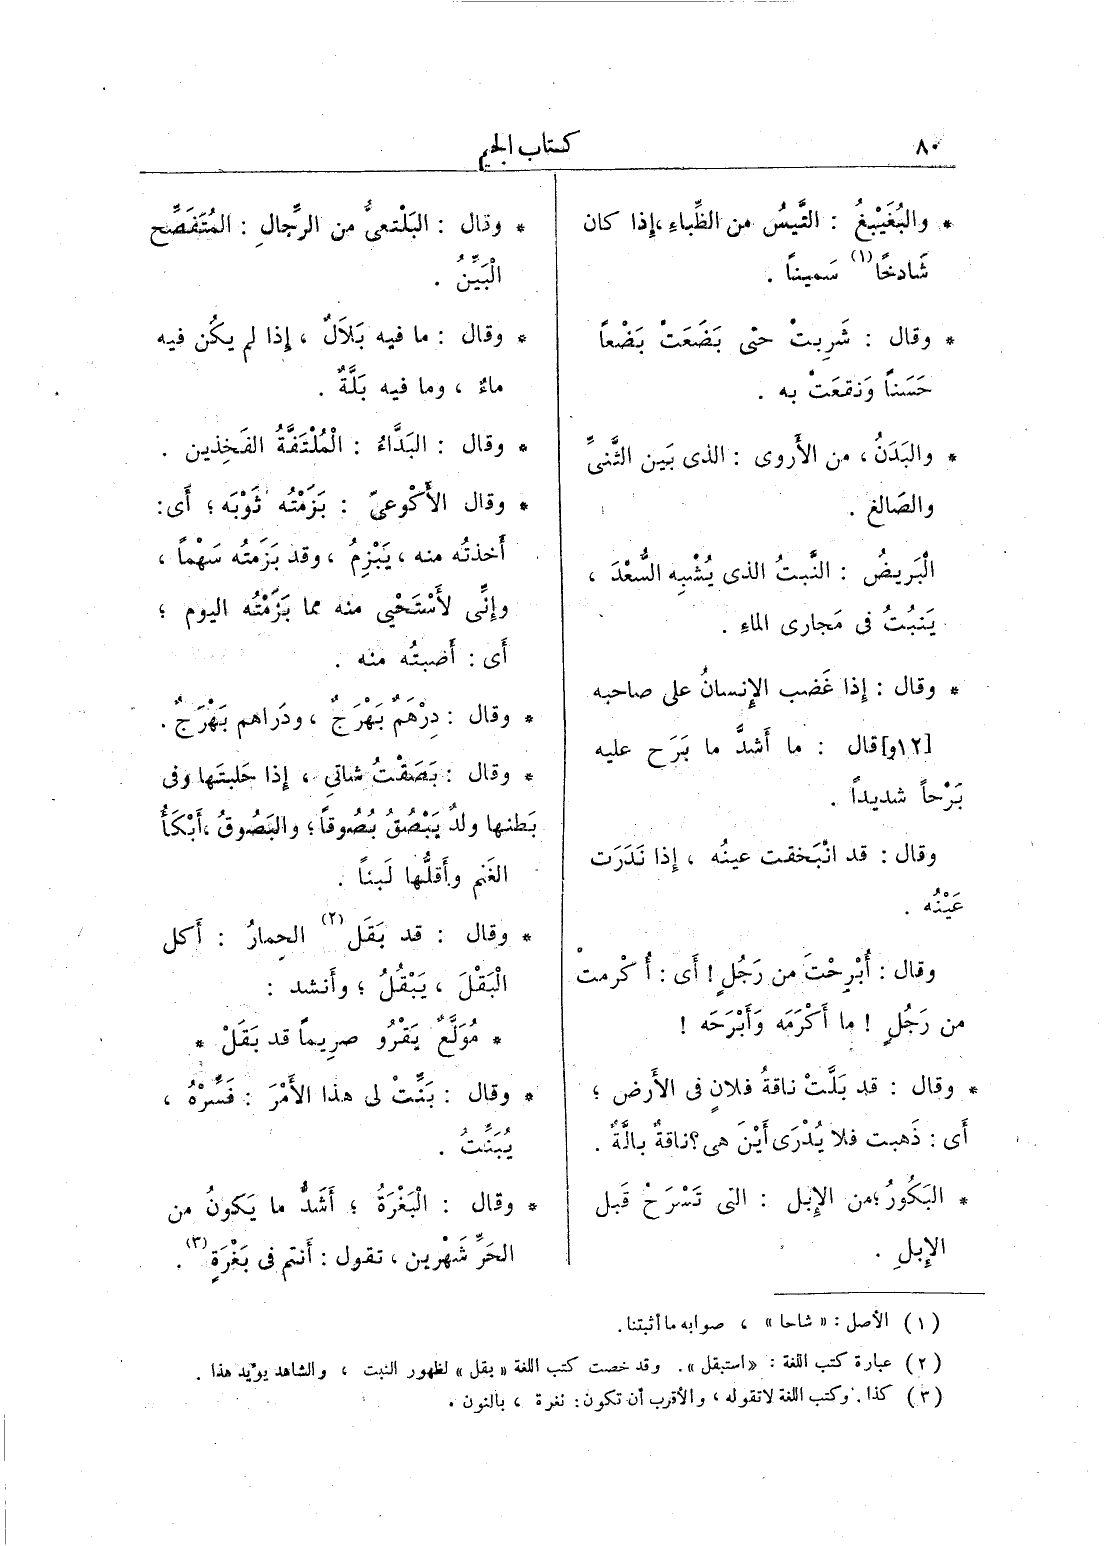 ٨٠
كتاب الجيم
* والبُغَيْبِغُ : التَّيسُ من الظِّباءِ ، إِذا كان
شَادخًا (١) سَميناً .
* وقال : شَرِبتْ حتى بَضَعَتْ بَضْعاً
حَسَناً وَنقعَتْ به .
* والبَدَنُ ، من الأَروى : الذى بَين الثَّنىِّ
والصَالغ .
الْبَريضُ : النَّبتُ الذى يُشْبِه السُّعْدَ ،
يَنبُتُ فى مَجارى الماءِ .
* وقال : إِذا غَضب الإِنسانُ على صاحبه
[١٢و] قال : ما أَشدَّ ما بَرَح عليه
بَرْحاً شديداً .
وقال : قد انْبَخقت عينُه ، إِذا نَدَرَت
عَيْنُه .
وقال : أُبْرِحْتَ من رَجُلٍ ! أَى : أُكْرمتْ
من رَجُلٍ ! ما أَكْرَمَه وَأَبْرَحَه !
* وقال : قد بَلَّتْ ناقةُ فلانٍ فى الأَرض ؛
أَى : ذَهبت فلا يُدْرَى أَيْنَ هى؟ ناقةٌ بالَّةٌ .
* البَكُورُ ؛ من الإِبل : التى تَسْرَحْ قَبل
الإِبلِ .
* وقال : البَلْتعىُّ من الرِّجالِ : المُتَفَصِّح
الْبَيِّنُ .
* وقال : ما فيه بَلاَلٌ ، إِذا لم يكُن فيه
ماءٌ ، وما فيه بَلَّةٌ .
* وقال : البَدَّاءُ : الْمُلْتَفَّةُ الفَخِذين .
* وقال الأَكْوعىّ : بَزَمْتُه ثَوْبَه ؛ أَى :
أَخذتُه منه ، يَبْزِمُ ، وقد بَزَمتُه سَهْماً ،
وإِنِّى لأَسْتَحْيي منه مما بَزَمْتُه اليوم ؛
أَى : أَصَبتُه منه .
* وقال : دِرْهَمٌ بَهْرَجٌ ، ودَراهم بَهْرَجٌ .
* وقال : بَصَقْتُ شاتي ، إِذا حَلبتَها وفى
بَطنها ولدٌ يَبْصُقُ بُصُوقاً ؛ والبَصُوقُ ، أَبْكَأُ
الغَنم وأَقلُّها لَبناً .
* وقال : قد بَقَل (٢) الحِمارُ : أَكل
الْبَقْلَ ، يَبْقُلُ ؛ وأَنشد :
* مُوَلَّعٌ يَقْرُو صريمًا قد بَقَلْ *
* وقال : بَنِّتْ لى هذا الأَمْرَ : فَسِّرْهُ ،
يُبَنِّتُ .
* وقال : الْبَغْرَةُ ؛ أَشَدُّ ما يَكونُ من
الحَرِّ شَهْرين ، تقول : أَنتم فى بَغْرَةٍ (٣) .
(١) الأصل : « شاحا » ، صوابه ما أثبتنا .
(٢) عبارة كتب اللغة : « استبقل » . وقد خصت كتب اللغة « بقل » لظهور النبت ، والشاهد يؤيد هذا .
(٣) كذا . وكتب اللغة لا تقوله ، والأقرب أن تكون : نغرة ، بالنون .